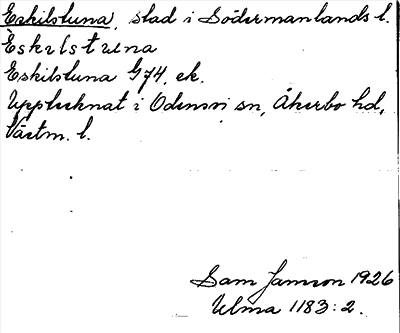 Eskilstuna, stad i Södermanlands l.
Èskɩlstuna
Eskilstuna G74, ek.
Upptecknat i Odensvi sn, Åkerbo hd,
Västm. l.
Sam Jansson 1926
Ulma 1183:2.